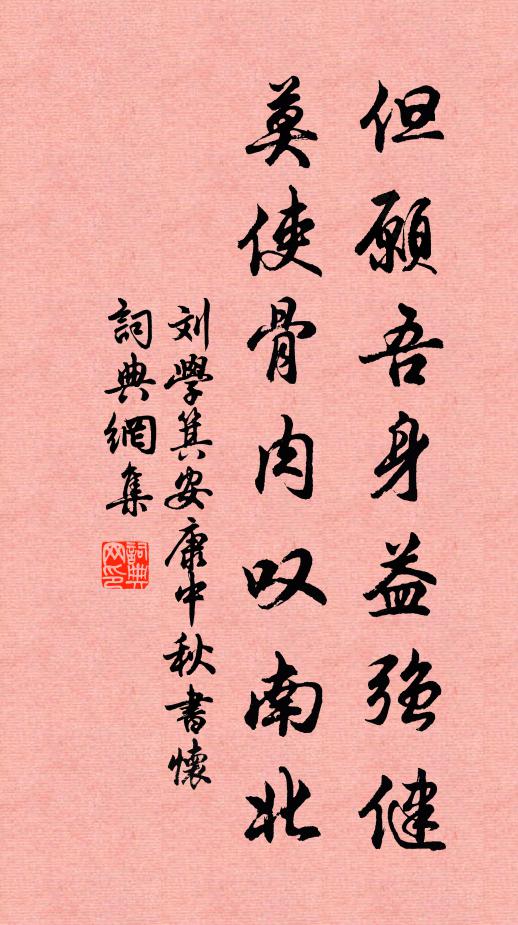 但愿吾身益强健
莫使骨肉叹南北
刘學箕安康中秋書懷
詞典網集
詞典
网印